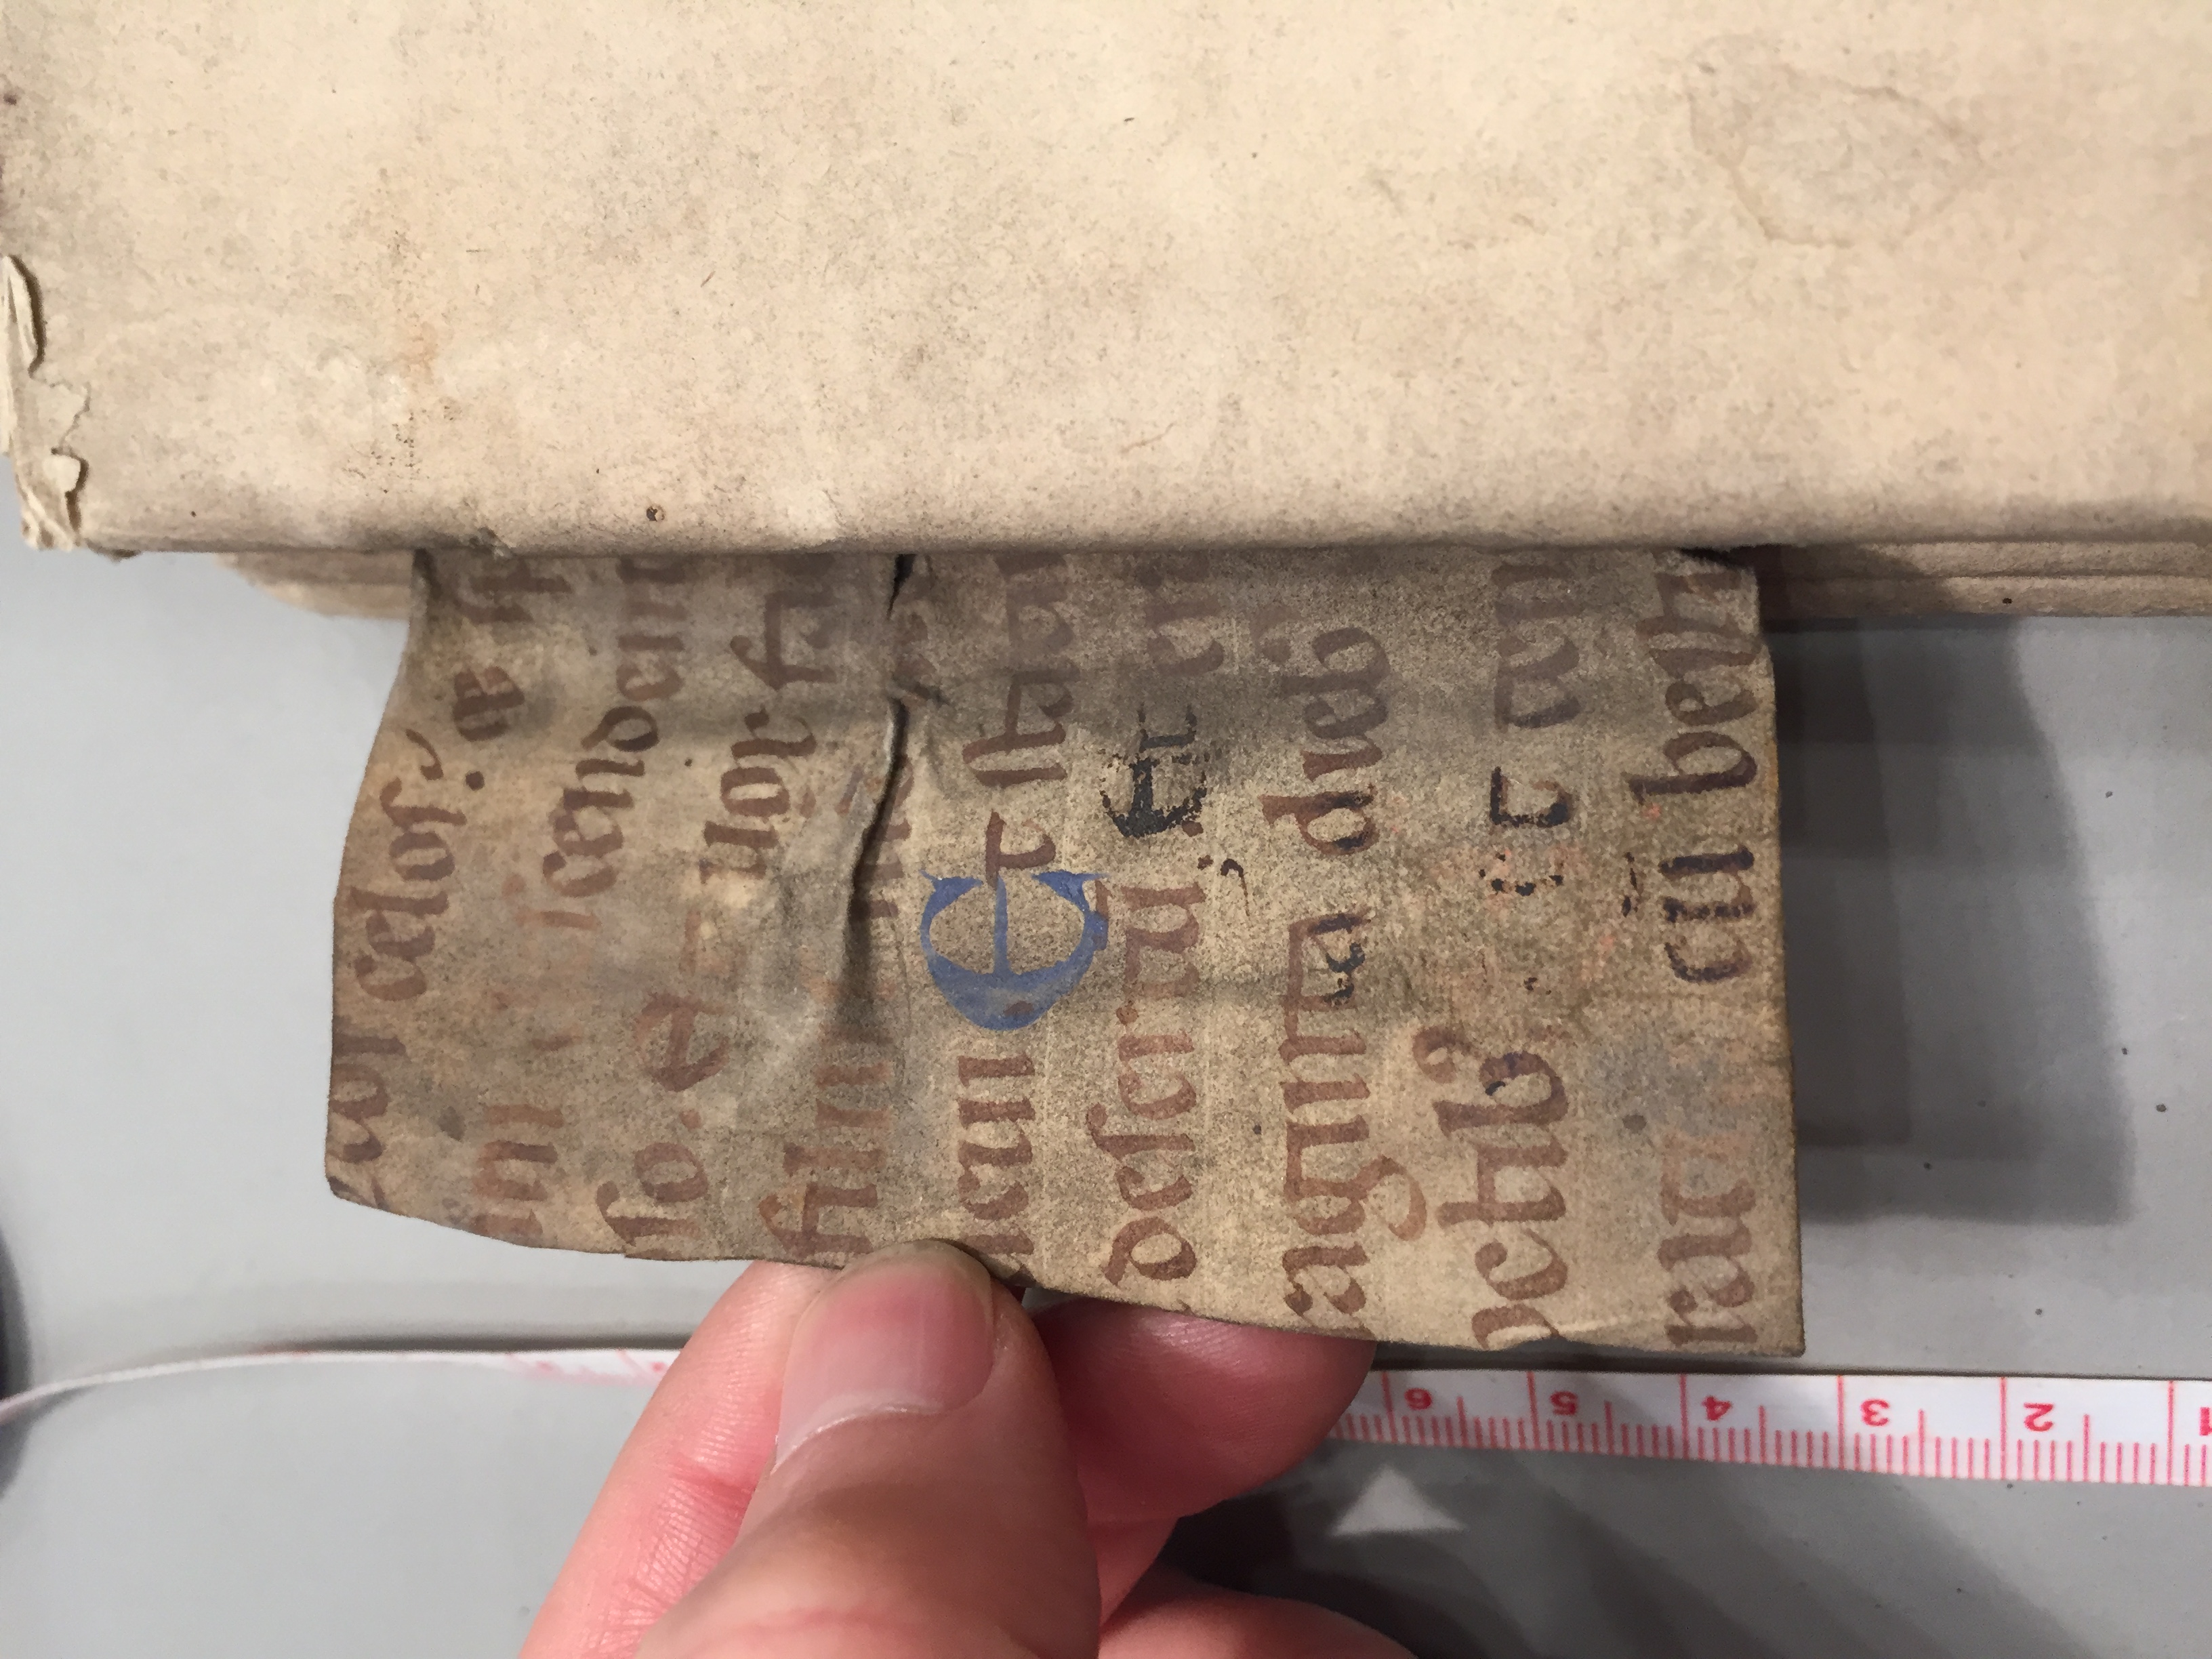 celos: et sp
cendent
so. Et uox fac
filiu
acui Et stati
desertu, Et er
raginta dieb9
octib9. et temp
rat cū besti
6
5
4
3
2
1